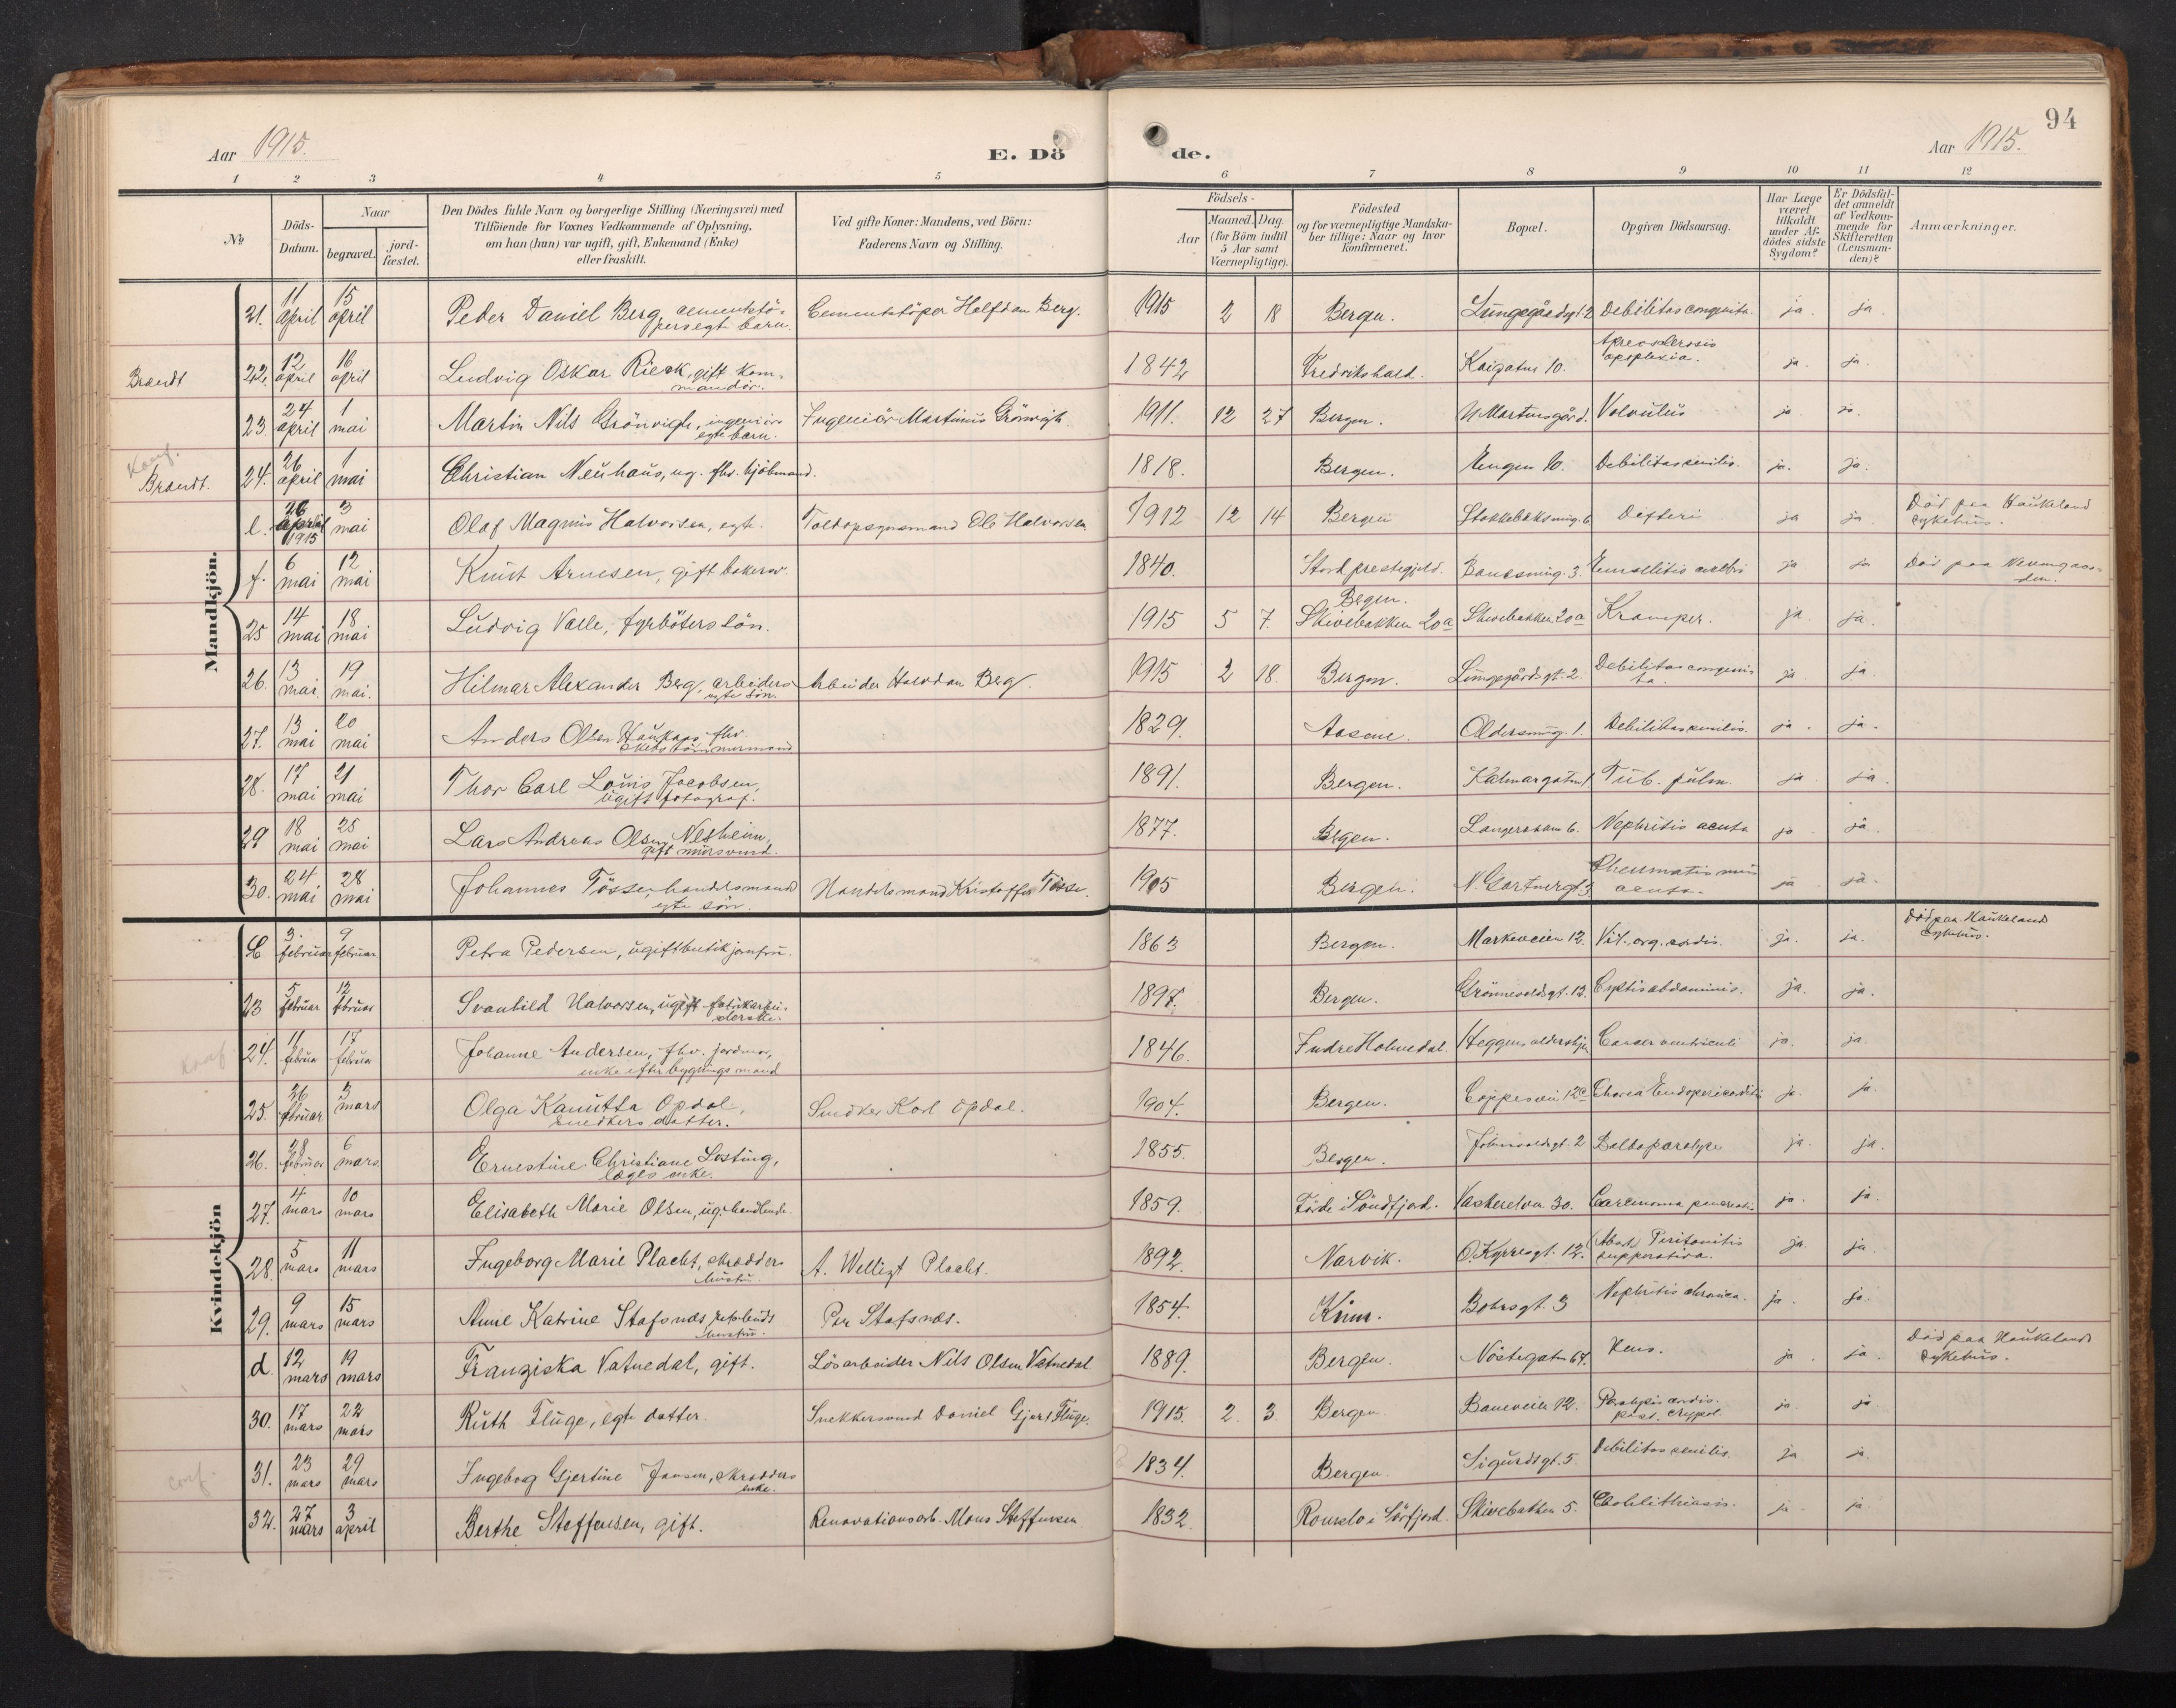 94
Aar 1915.
E. Dö de.
Aar 1915.
1 2 3 4 5 6 7 8 9 10 11 12
No
Döds-Datum.
Naar
begravet.
jord-fæstet.
Den Dödes fulde Navn og borgerlige Stilling (Næringsvei) med
Tilföiende for Voxnes Vedkommende af Oplysning,
om han (hun) var ugift, gift, Enkemand (Enke)
eller fraskilt.
Ved gifte Koner: Mandens, ved Börn:
Faderens Navn og Stilling.
Födsels-
Aar
Maaned. Dag.
(for Börn indtil
5 Aar samt
Værnepligtige).
Födested
og for værnepligtige Mandska-
ber tillige: Naar og hvor
konfirmeret.
Bopæl.
Opgiven Dödsaarsag.
Har Læge
været
tilkaldt
under Af-
dödes sidste
Sygdom?
Er Dödsfal-
det anmeldt
af Vedkom-
mende for
Skifteretten
(Lensman-
den)?
Anmærkninger.
Mandkjön.
21. 11 april 15 april Peder Daniel Berg, cementstö-
persegt barn. Cementstöper Halfdan Berg. 1915 2 18 Bergen. Lungegårdsgt. 2 Debilitas congenita. ja. ja.
Brandt 22. 12 april 16 april Ludvig Oskar Rieck, gift kom-
mandör. 1842 Fredrikshald. Kaigaten 10. apoplexia. ja. ja.
23. 24 april 1 mai Martin Nils Grönvigh, ingeniörs
egte barn. Ingeniör Martinus Grönvigh. 1911. 12 27 Bergen. Volvulus ja. ja.
Brandt. 24. 26 april 1 mai Christian Neuhaus, ug. fhv. kjöbmand. 1818. Bergen. Engen 10. Debilitas senilis. ja. ja.
e. 26 april 1915 3 mai Olaf Magnus Halvorsen, egte. Toldopsynsmand Ole Halvorsen 1912 12 14 Bergen Defteri ja ja Död paa Haukeland
sykehus.
f. 6 mai 12 mai Knut Arnesen, gift bakersv. 1840. Stord prestegjeld. ja ja
25 14 mai 18 mai Ludvig Valle, fyrböters sön. 1915 5 7. Bergen.
Skivebakken 20a Skivebakken 20a Kramper. ja. ja.
26. 13 mai. 19 mai. Hilmar Alexander Berg, arbeiders
egte sön. Arbeider Halvdan Berg. 1915 2 18. Bergen. Lungegårdsgt. 2. Debilitas congeni-
ta. ja. ja.
27. 13 mai 20 mai Anders Olsen Haukaas, fhv.
skibstömmermand 1829. Aasene. Oldersmug. 1. Debilitas senilis. ja. ja.
28. 17 mai 21 mai Thor Carl Louis Jacobsen,
ugift fotograf. 1891. Bergen. Kalmargaten 1 Tub. pulm. ja. ja.
29 18 mai 25 mai Lars Andreas Olsen Nesheim,
gift mursvend. 1877. Bergen. 6. Nephritis acuta ja ja.
30. 24 mai 28 mai Johannes Tösse, handelsmands
egte sön. Handelsmand Kristoffer Tösse. 1905 Bergen. N. Gartnergt. 3 Rheumatismus
acuta. ja ja.
Kvindekjön
C 3. februar 9 februar Petra Pedersen, ugift butikjomfru. 1863 Bergen. Markeveien 12. Vit. org. cordis. ja. ja. Död paa Haukeland
sykehus.
23 5 februar 12 februar Svanhild Halvorsen, ugift fabrikarbei-
derske. 1897. Bergen. 12. abdominis. ja. ja.
24. 11 februar 17 februar Johanne Andersen, fhv. jordmor,
enke efter bygningsmand 1846. Indre Holmedal. Heggens aldershjem Cancer ventriculi ja. ja.
25. 26 februar 3 mars Olga Kanutta Opdal,
snedkers datter. Snedker Karl Opdal. 1904. Bergen. Chorea ja. ja.
26. 28 februar 6 mars Ernestine Christiane Losting,
læges enke. 1855. Bergen. 2 Bulbo paralyse ja. ja.
27. 4 mars 10 mars Elisabeth Marie Olsen, ug. handlende. 1859. Förde i Söndfjord. 30. Carcinoma pancreatis ja. ja.
28. 5 mars 11 mars Ingeborg Marie Placht, skrædders
hustru. A. Placht. 1892. Narvik. O. Kyrresgt. 12. (Abort) Peritonitis
suppurativa. ja ja.
29. 9 mars 15 mars Anne Katrine Stafsnæs,
hustru. Per Stafsnæs. 1854. Kinn. Bohrsgt. 3 Nephritis chronica. ja. ja.
d. 12 mars 19 mars Franziska Vatnedal, gift. Lösarbeider Nils Olsen Vatnedal 1889. Bergen. Nöstegaten 64. Ileus. ja. ja. Död paa Haukeland
sykehus.
30. 17 mars 22 mars Ruth Fluge, egte datter. Snekkersvend Daniel Gjert Fluge. 1915. 2. 3. Bergen. Baneveien 12. Paralysis cordis. ja. ja.
conf. 31. 23 mars 29 mars Ingeborg Gjertine Jansen, skrædders
enke. 1834. Bergen. Sigurdsgt. 5. Debilitas senilis. ja ja.
32. 27 mars 3 april Berthe Steffensen, gift. Renovationsarb. Mons Steffensen 1832. Skivebakken 5. Cholelithiasis. ja. ja.